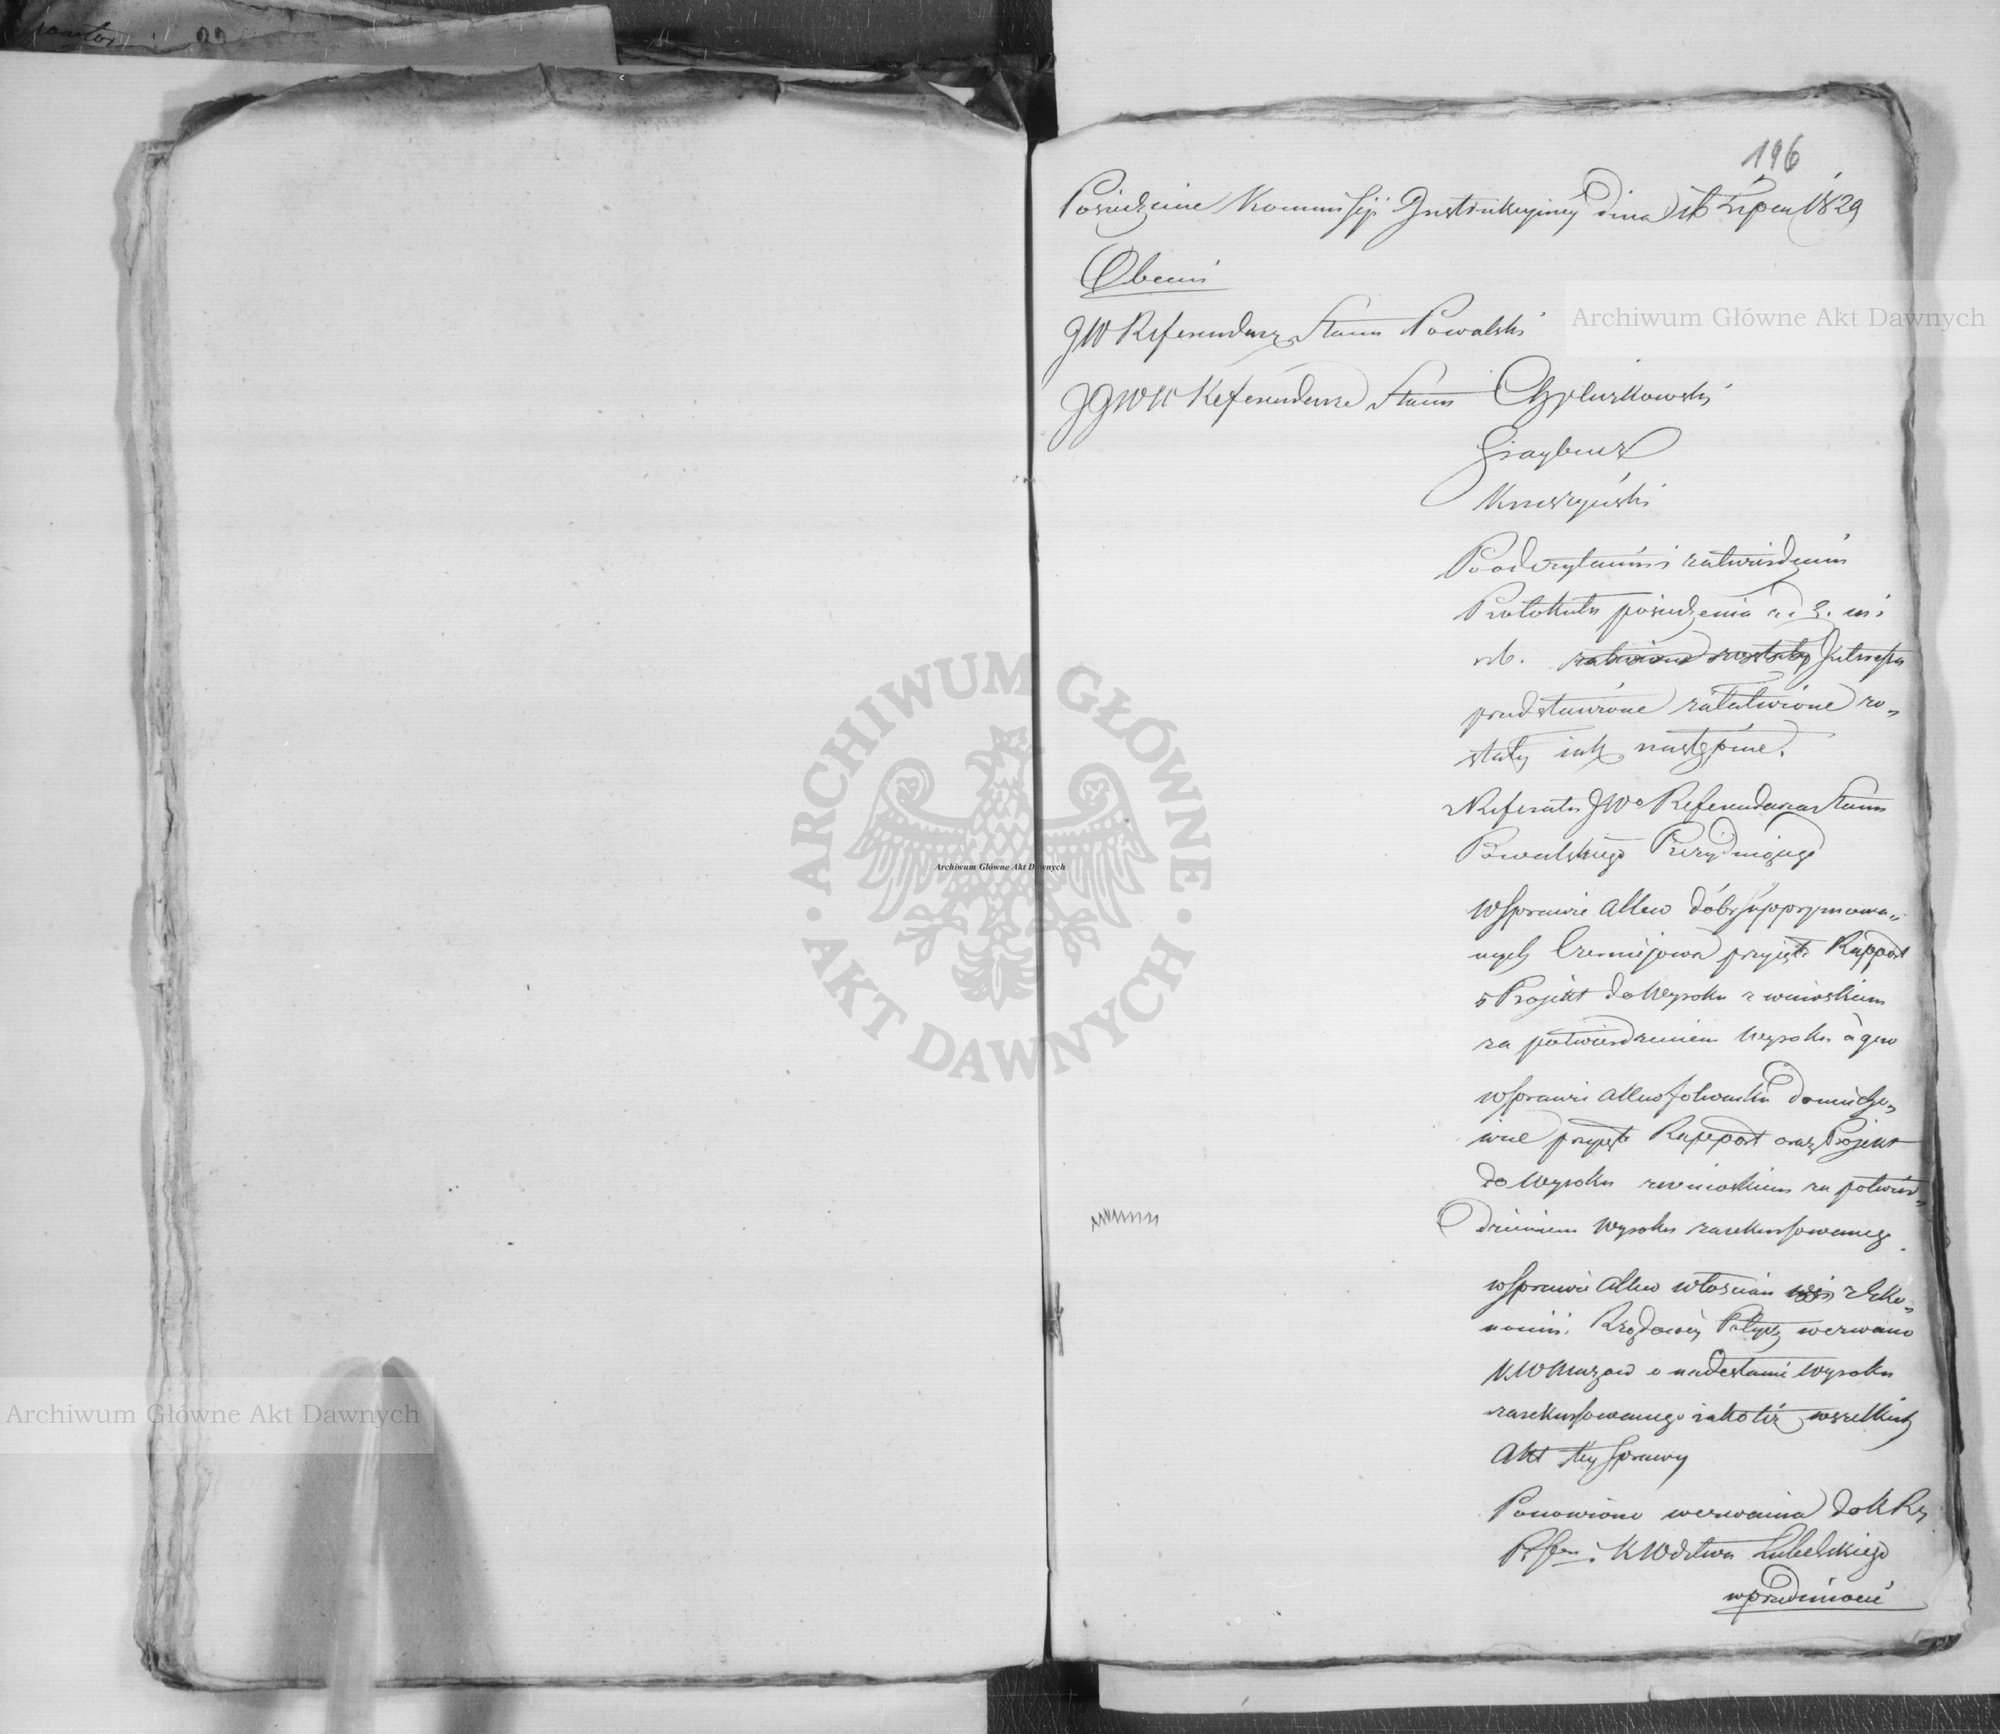 196
Posiedzenie Kommissji Instrukcyiney dnia 16 Lipca 1829
Obecni
JW Referendarz Stanu Powalski
JJWW Referendarze Stanu
Grayber
Kruszyński
Po odczytaniu i zatwierdzeniu
Protokułu posiedzenia z d. 2. m. i
r. b. Interessa
przedstawione załatwione zo„
stały iak następuie.
z Referatu JWo Referendarza Stanu
Powalskiego Prezyduiącego
W Sprawie Allew dóbr Supprymowa„
nych Czerniejowa przyięto Rapport
i Projekt do Wyroku z wnioskiem
za potwierdzeniem Wyroku à quo
w Sprawie Allew folwarku
przyięto Rapport oraz Projekt
do Wyroku z wnioskiem za potwier„
dzeniem Wyroku zarekursowanego.
w Sprawie Allew włościan z Eko„
nomii Rządowey wezwano
KW Mazow o nadesłanie Wyroku
zarekursowanego iako też wszelkich
Akt tey Sprawy
Ponowiono wezwania do K Rz
i K Wdztwa Lubelskiego
w przedmiocie
Archiwum Główne Akt Dawnych
Archiwum Główne Akt Dawnych
Archiwum Główne Akt Dawnych
ARCHIWUM GŁÓWNE
AKT DAWNYCH